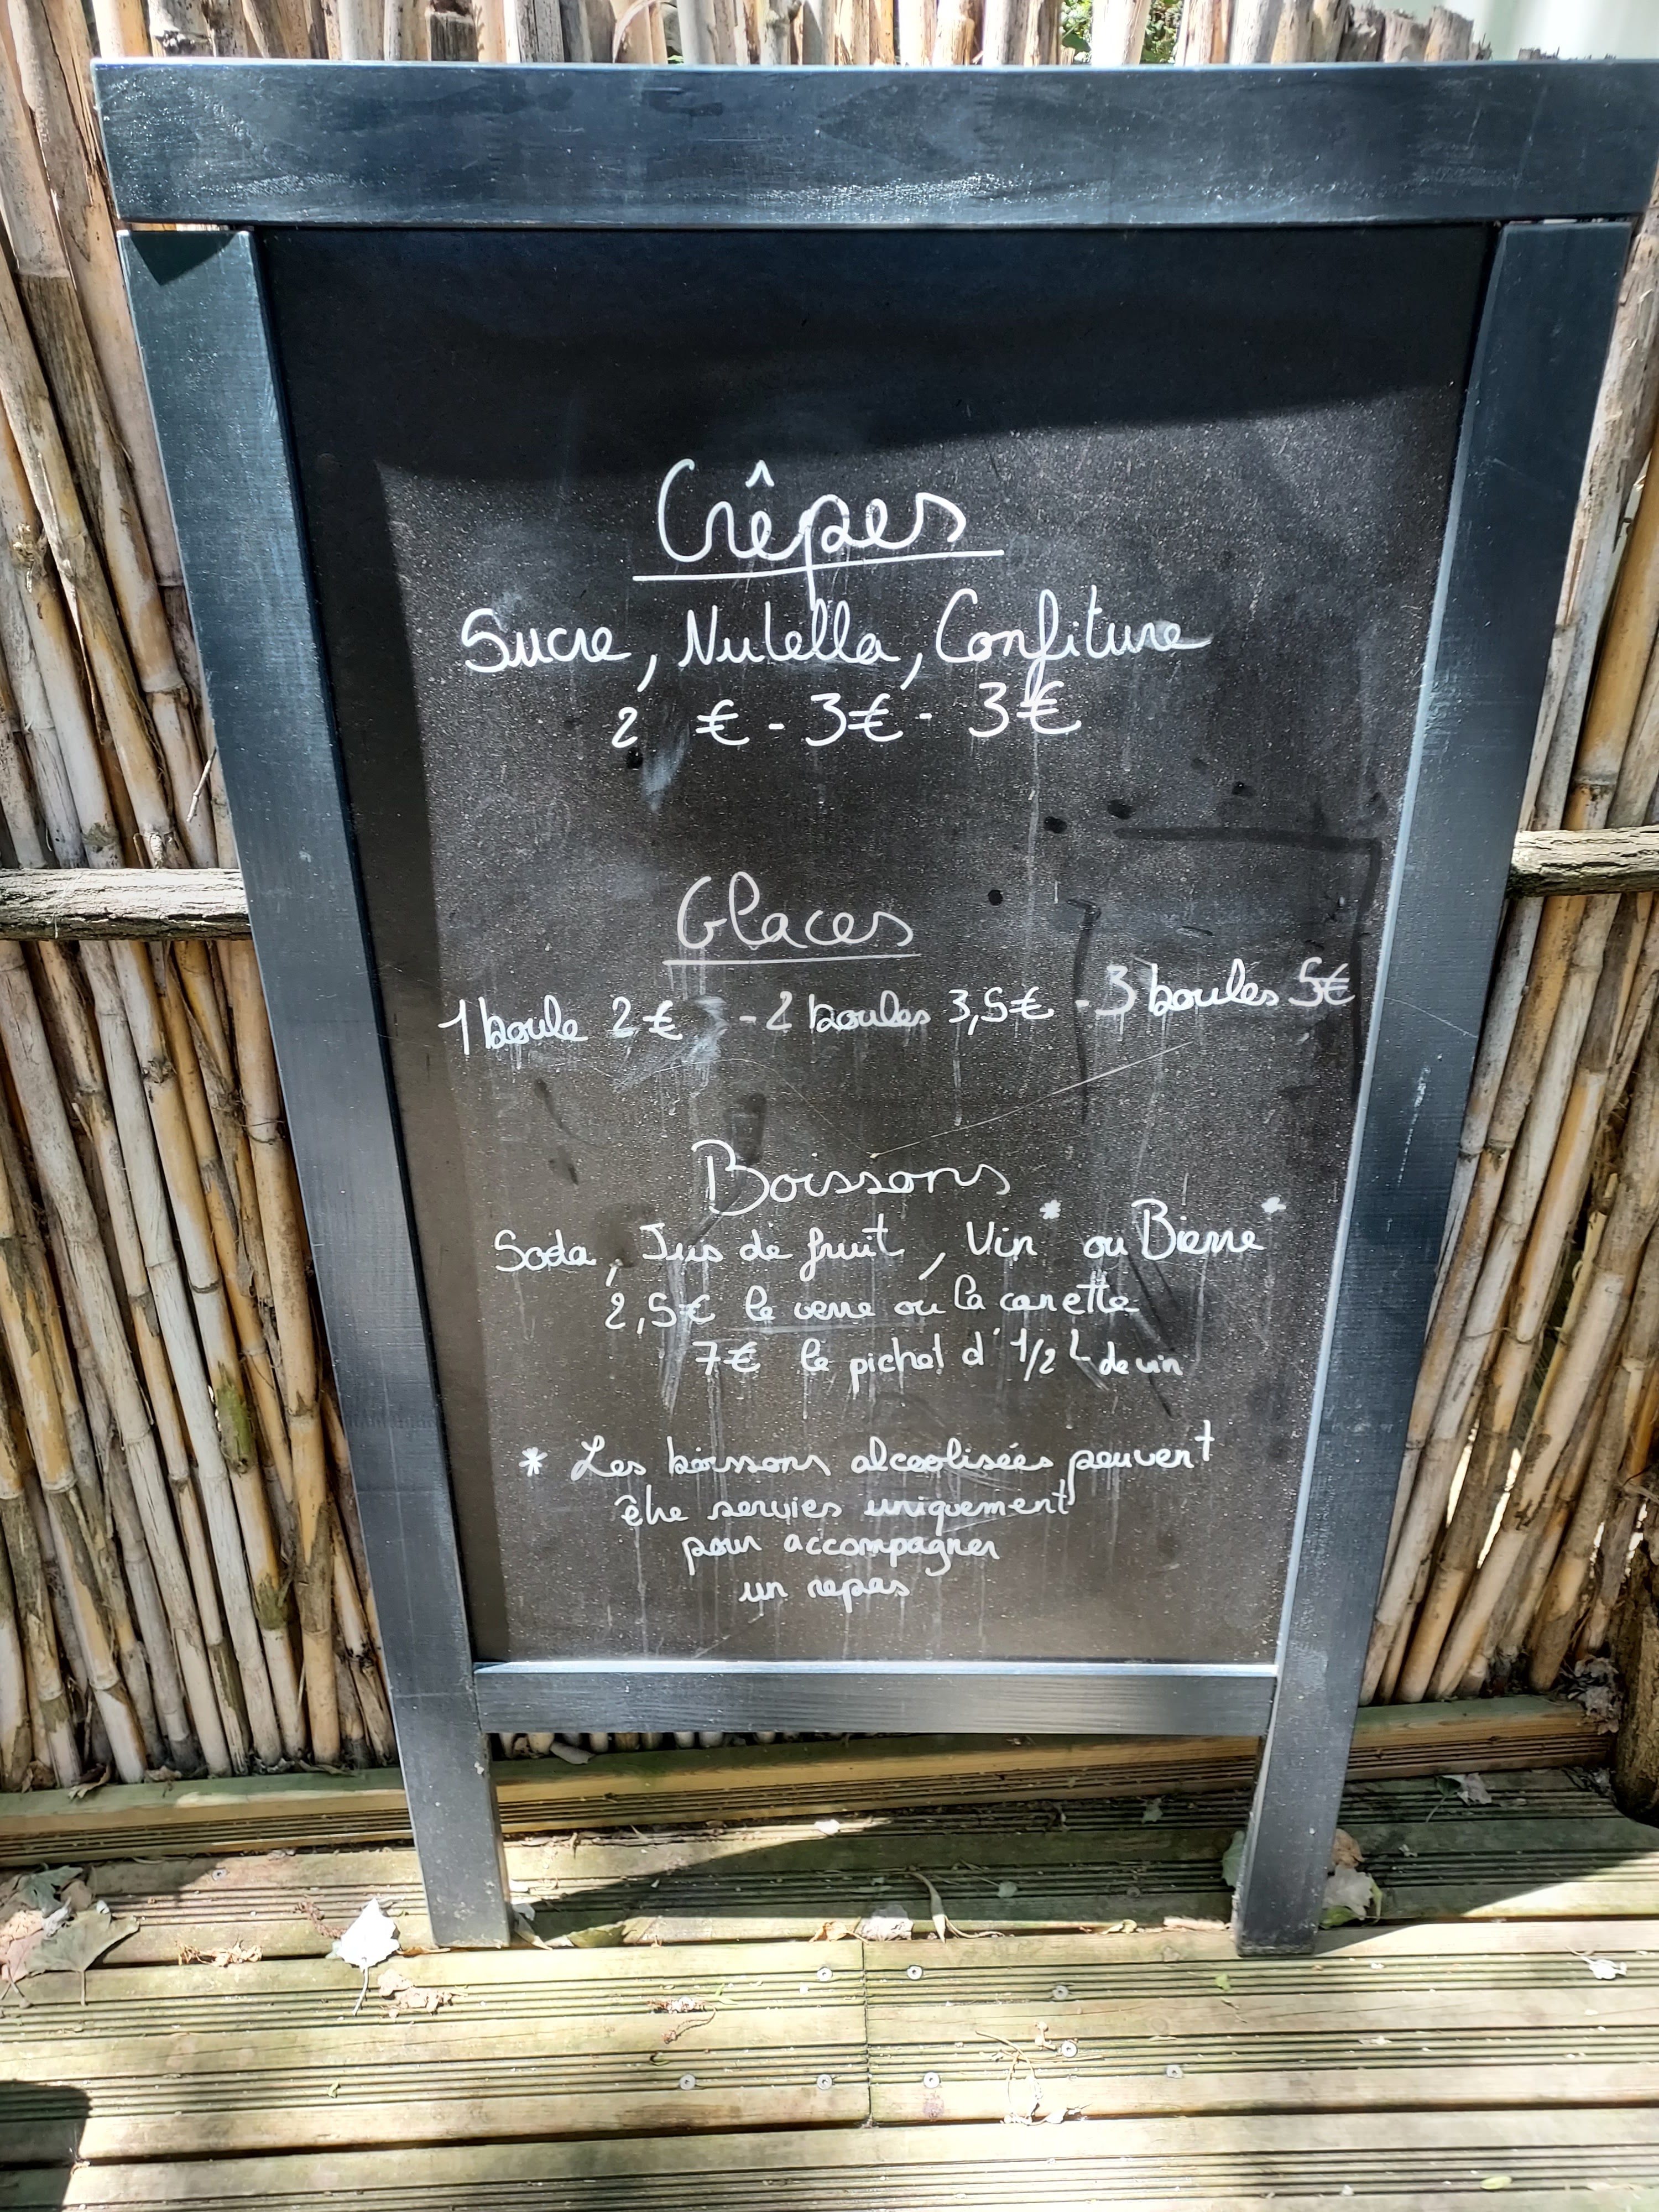 Crêpes
Sucre, Nutella, Confiture
2 € - 3€ - 3€
Glaces
1 boule 2€ - 2 boules 3,5€ - 3 boules 5€
Boissons
Soda, Jus de fruit, Vin* ou Bierre*
2,5€ le verre ou la canette
7€ le pichet d'1/2 L de vin
* Les boissons alcoolisées peuvent
être servies uniquement
pour accompagner
un repas